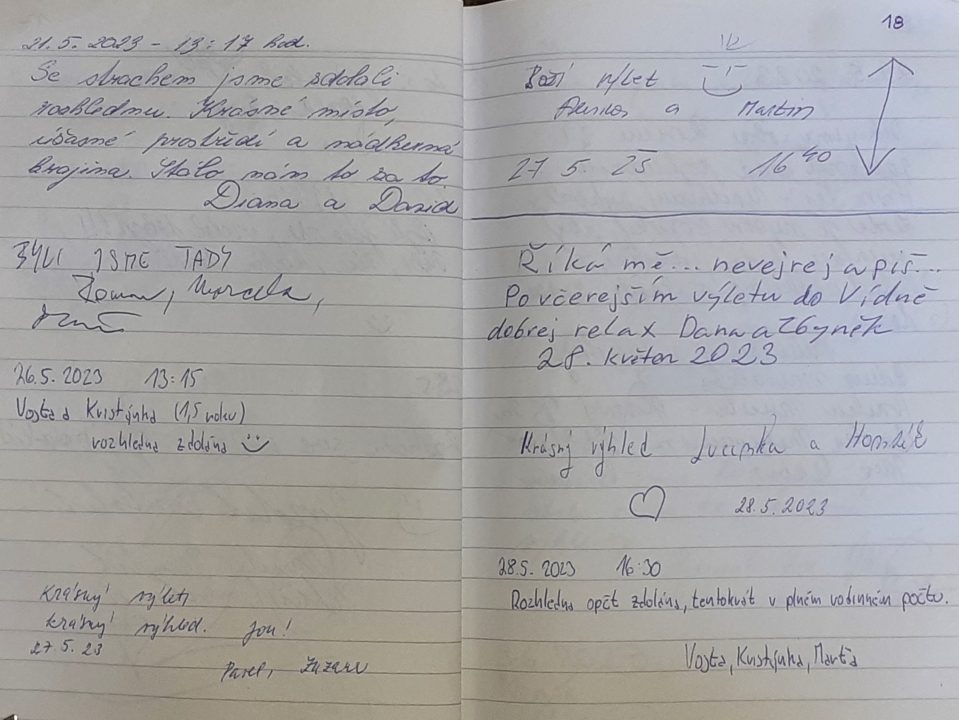 21. 5. 2023 - 13:17 hod.
Se strachem jsme zdolali
rozhlednu. Krásné místo,
úžasné prostředí a nádherná
krajina. Stálo nám to za to.
Diana a David
BYLI JSME TADY
Roman, Marcela,
26.5.2023 13:15
Vojta a Kristýnka (1,5 roku)
rozhledna zdolána
Krásný výlet,
krásný výhled. Jou!
27. 5. 23
Pavel, Zuzana
18
1/2
Boží výlet
a Martin
27 5. 23 16 40
Říká mě... nevejrej a piš...
Po včerejším výletu do Vídně
dobrej relax Dana a Zbyněk
28. květen 2023
Krásný výhled Lucinka a Honzík
28.5.2023
28.5. 2023 16:30
Rozhledna opět zdolána, tentokrát v plném rodinném počtu.
Vojta, Kristýnka, Marťa